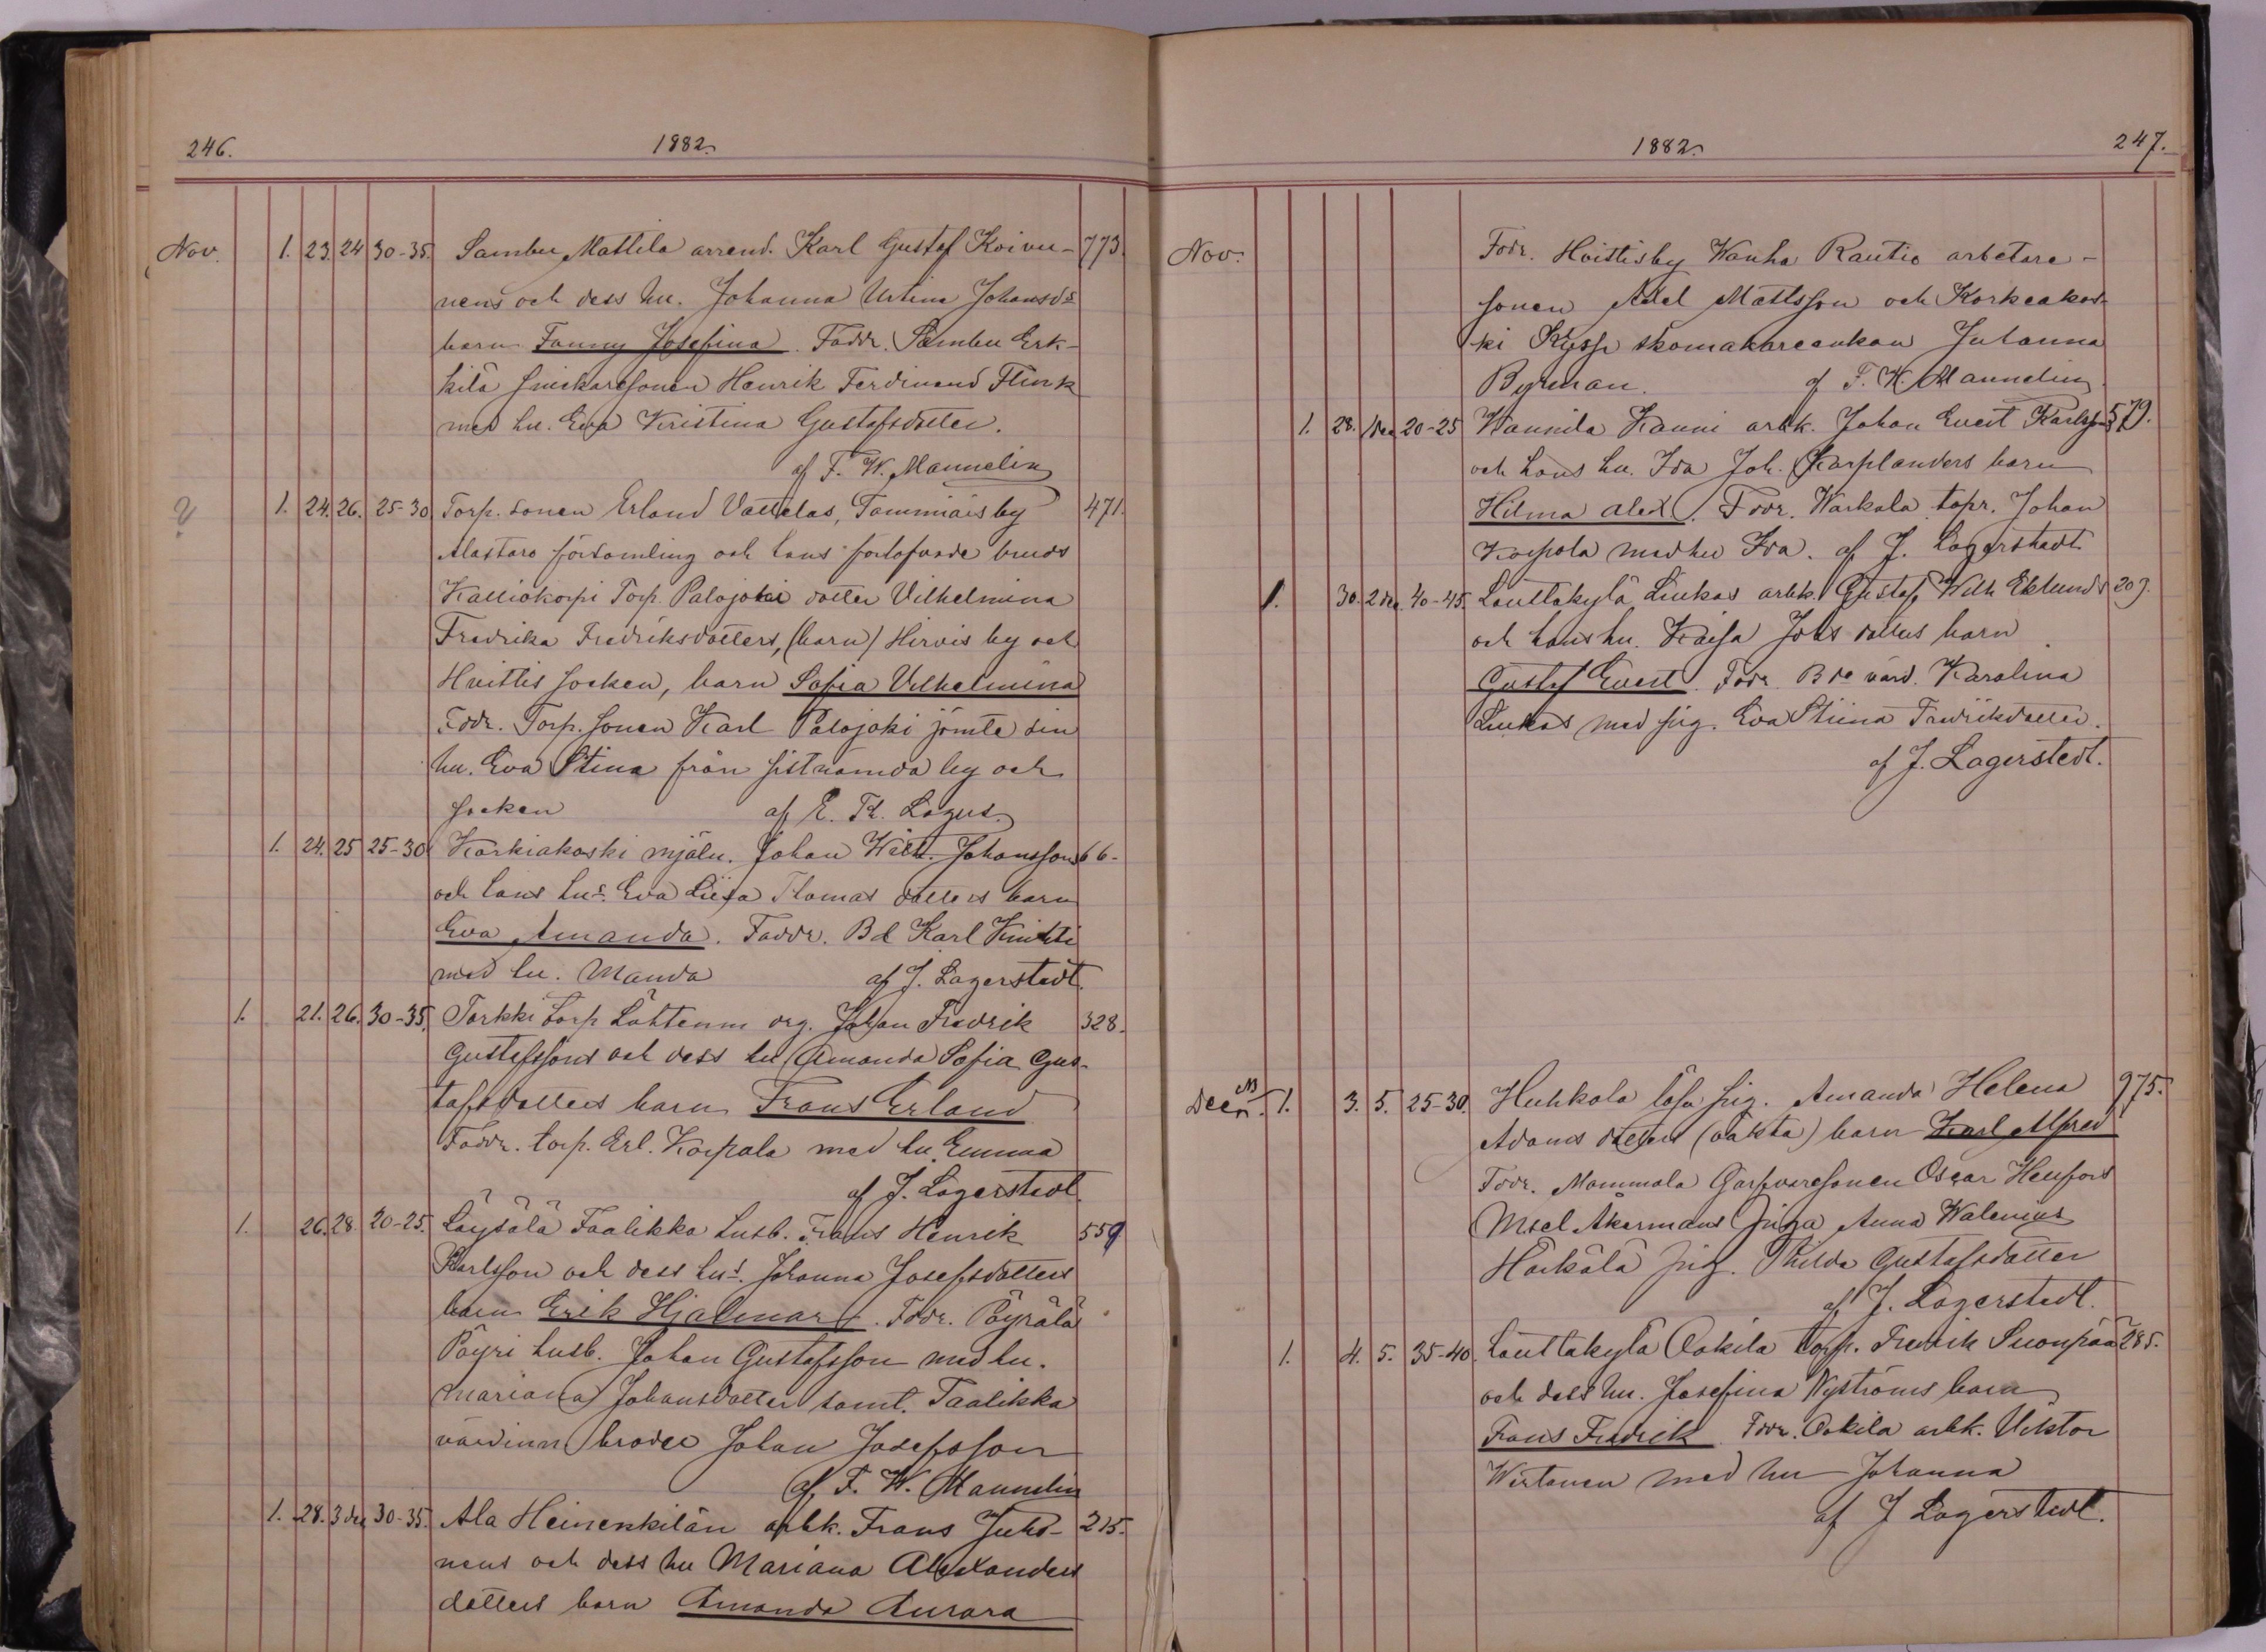 246.
1882.
Nov. 1. 23. 24 30-35. Sambu Mattila arrend. Karl Gustaf Koivu- 773.
nens och dess hu. Johanna Johansds
barn Fanny Josefina. Faddr. Sambu Erk-
kilä snickaresonen Henrik Ferdinand Flink
med hu. Eva Kristina Gustafsdotter.
af F. W. Mannelin
? 1. 24. 26. 25-30 Torp. sonen Erland Vattelas, Tammiais by 471.
Alastaro församling och hans förlofvade bruds
Kalliokorpi Torp. Palojoki dotter Vilhelmina
Fredrika Fredriksdotters, (barn) Hirvis by och
Hvittis socken, barn Sofia Vilhelmina
Fddr. Torp. sonen Karl Palojoki jämte sin
hu. Eva Stina från sistnämda by och
socken af E. Th. Lagus.
1. 24. 25 25-30 Korkiakoski mjöln. Johan Wilh. Johansson 66-
och hans hus. Eva Liisa Thomas dotters barn
Eva Amanda. Faddr. Bd Karl
med hu. Manda af J. Lagerstedt.
1. 21. 26. 30-35. Torkki torp Lähteenm drg. Johan Fredrik 328.
Gustafssons och dess hu Amanda Sofia Gus-
tafsdotters barn Frans Erland
Faddr. torp. Erl. Korpala med hu. Emma
af J. Lagerstedt.
1. 26. 28. 20-25. Löysälä Taalikka husb. Frans Henrik 559
Karlsson och dess hus. Johanna Josefsdotters
barn Erik Hjalmar. Fddr. Pöyrälä
Pöyri husb. Johan Gustafsson med hu.
Mariana Johansdotter samt. Taalikka
värdinn broder Johan Josefsson
af F. W. Mannelin
1. 28. 3 dec 30-35. Ala Heinenkilän arbk. Frans Juho- 215.
nens och dess hu Mariana Alexanders
dotters barn Amanda Aurora
1882.
247.
Nov. Fddr. Hvittisby Wanha Rautio arbetare-
sonen Axel Mattsson och Korkeakos-
ki Kyssä skomakareenkan Johanna
Byman. af F. W. Mannelin.
1. 28. 1 dec 20-25 Wannila Kanni arbk. Johan Evert Karlsson 579.
och hans hu. Ida Joh. Karplanders barn
Hilma Alex. Fddr. Karkala topr. Johan
Korpola med hu Ida. af J. Lagerstedt
1. 30. 2 dec. 40-45. Lauttakylä Liukas arbk. Gustaf Wilh Eklunds 209.
och hans hu. Kaisa Johs dotters barn
Gustaf Evert. Fddr. Bde värd. Karolina
Liukas med pig. Eva Stiina Fredriksdotter.
af J. Lagerstedt.
Decm. 1. 3. 5. 25-30. Huhkola lösa pig. Amanda Helena 975.
Adams dotters (oäkta) barn Karl Alfred
Fddr. Mommola Garfvaresonen Oscar Henfors
Msel Åkermans piga Anna Walenius
Härkälä pig. Thilda Gustafsdotter
af J. Lagerstedt.
1. 4. 5. 35-40. Lauttakylä Ookila torp. Fredrik Suonpää 285.
och dess hu. Josefina Nyströms barn
Frans Fredrik Fddr. Ookila arbk. Viktor
Wirtanen med hu Johanna
af J Lagerstedt.